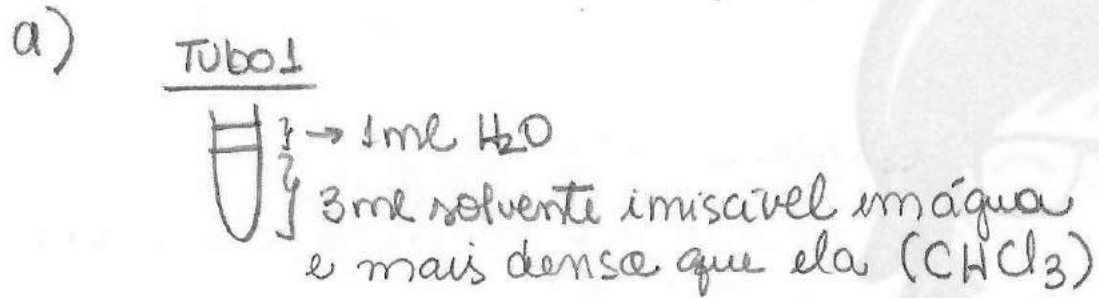 a)
Tubo1
→ 1ml H₂O
3ml solvente imiscível em água
e mais densa que ela (CHCl₃)